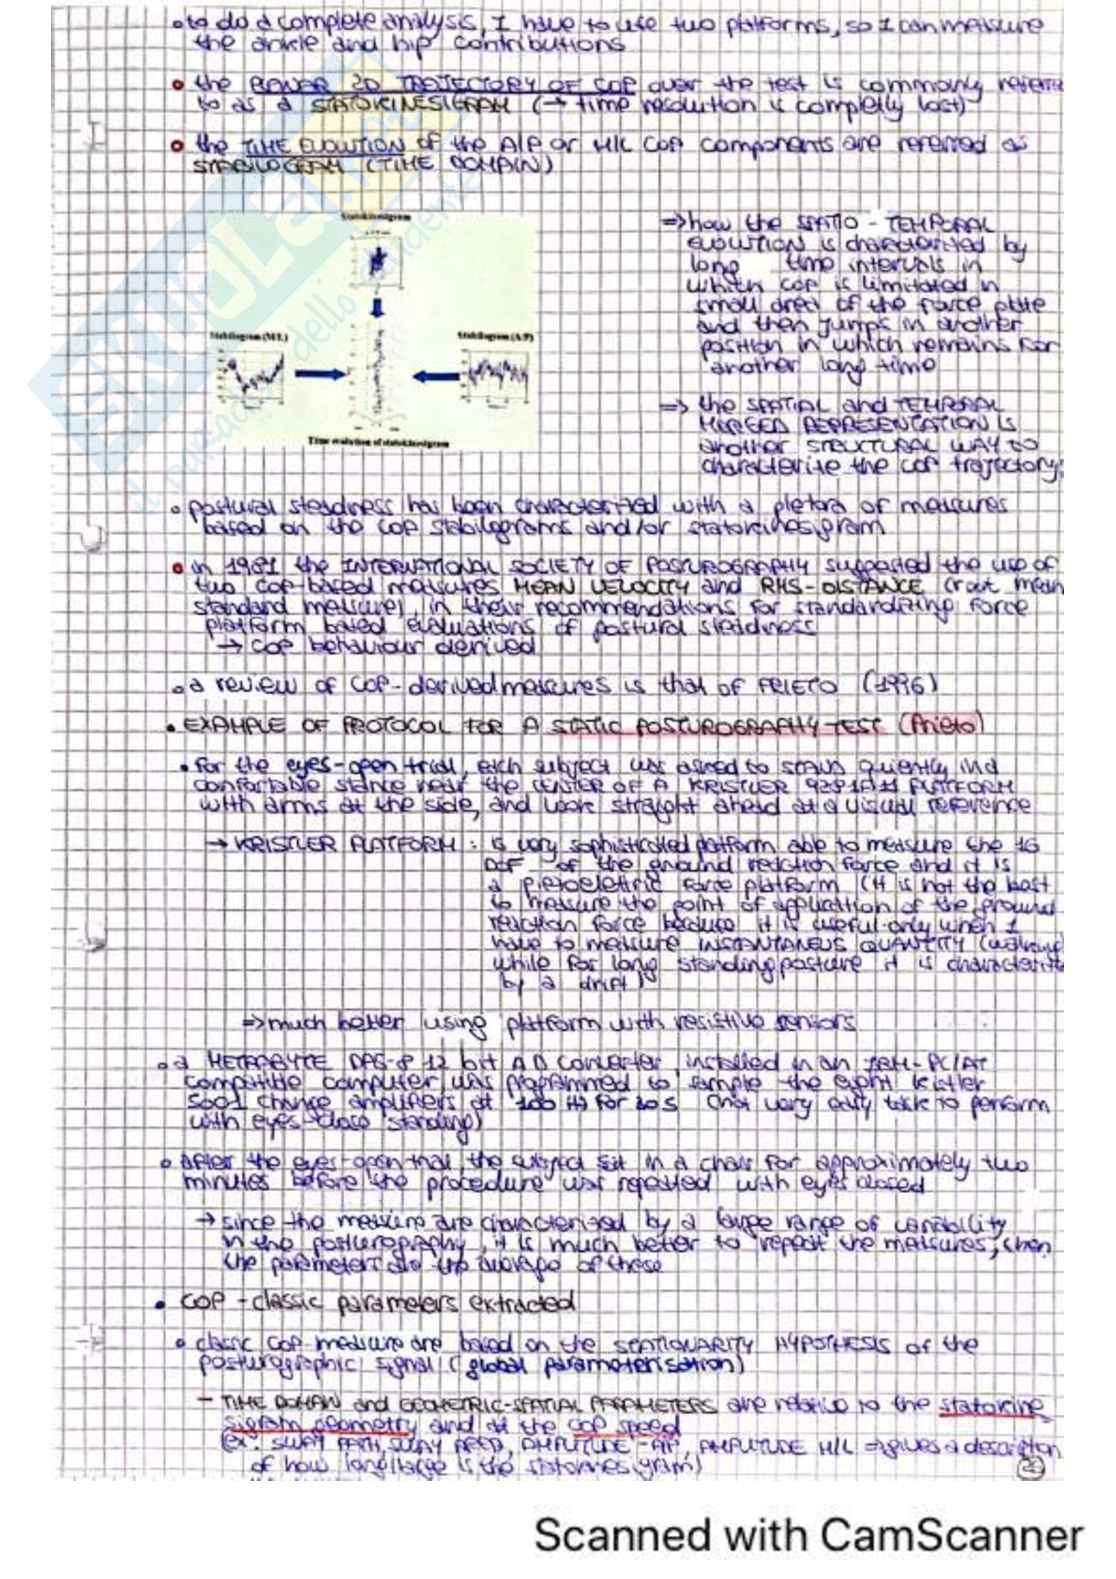 • to do a complete analysis, I have to use two platforms, so I can measure
the ankle and hip contributions
• the PLANAR 2D TRAJECTORY OF COP over the test is commonly referred
to as a STATOKINESIGRAM (→ time resolution is completly lost)
• the TIME EVOLUTION of the A/P or M/L COP components are referred as
STABILOGRAM (TIME DOMAIN)
Statokinesigram
Stabilogram (M/L)
Stabilogram (A/P)
Time evolution of statokinesigram
⇒ how the SPATIO - TEMPORAL
EVOLUTION is characterized by
long time intervals in
which COP is limitated in
small area of the force plate
and then jumps in another
position in which remains for
another long time
⇒ the SPATIAL and TEMPORAL
MERGED REPRESENTATION is
another STRUCTURAL WAY to
characterize the COP trajectory
• postural steadness has been characterized with a pletora of measures
based on the COP stabilograms and/or statokinesigram
• in 1981 the INTERNATIONAL SOCIETY OF POSTUROGRAPHY suggested the use of
two COP-based measures MEAN VELOCITY and RMS-DISTANCE (root mean
standard measure), in their recommendations for standardizing force
platform based evaluations of postural steadiness
→ COP behaviour derived
• a review of COP-derived measures is that of PRIETO (1996)
• EXAMPLE OF PROTOCOL FOR A STATIC POSTUROGRAPHY TEST (Prieto)
• for the eyes-open trial, each subject was asked to stand quietly in a
comfortable stance near the CENTER OF A KRISTLER 9281A11 PLATFORM
with arms at the side, and look straight ahead at a visual reference
→ KRISTLER PLATFORM : is very sophisticated platform able to measure the 16
DOF of the ground reaction force and it is
a piezoelettric force platform (it is not the best
to measure the point of application of the ground
reaction force because it is useful only when I
have to measure INSTANTANEUS QUANTITY (walking)
while for long standing posture it is characterize
by a drift)
⇒ much better using platform with resistive sensors
• a METRABYTE DAS-8 12 bit A D converter, installed in an IBM-PC/AT
compatible computer, was programmed to sample the eight Kistler
5001 charge amplifiers at 100 Hz for 20s (not very easy task to perform
with eyes-close standing)
• after the eyes-open trial, the subject sit in a chair for approximately two
minutes before the procedure was repeated with eyes closed
→ since the measure are characterized by a large range of variability
in the posturography, it is much better to repeat the measures, then
the parameters are the average of these
• COP - classic parameters extracted
• classic COP-measure are based on the STATIONARITY HYPOTHESIS of the
posturographic signal (global parameterisation)
- TIME DOMAIN and GEOMETRIC-SPATIAL PARAMETERS are relative to the statokine
sigram geometry and at the COP speed
(ex. SWAY PATH, SWAY AREA, AMPLITUDE - A/P, AMPLITUDE M/L ⇒ gives a description
of how long/large is the statokinesigram)
Scanned with CamScanner